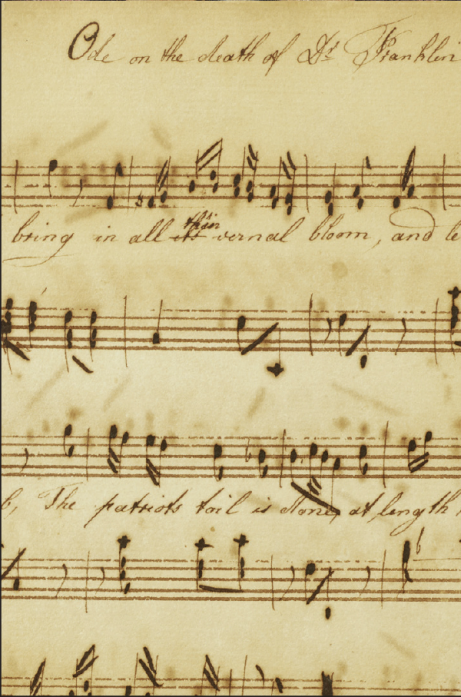 Ode on the death of Dr Franklin
their
bring in all its vernal bloom, and le
b, The patriots toil is done, at length